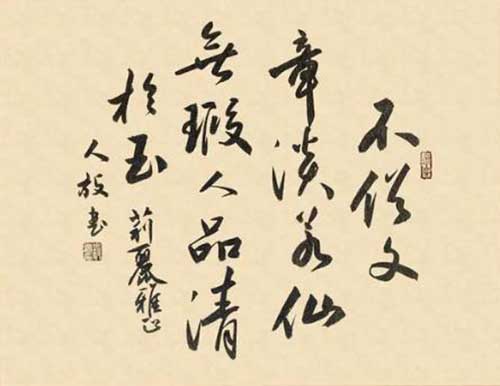 不俗文
章淡若仙
無瑕人品清
於玉
莉麗雅正
人書